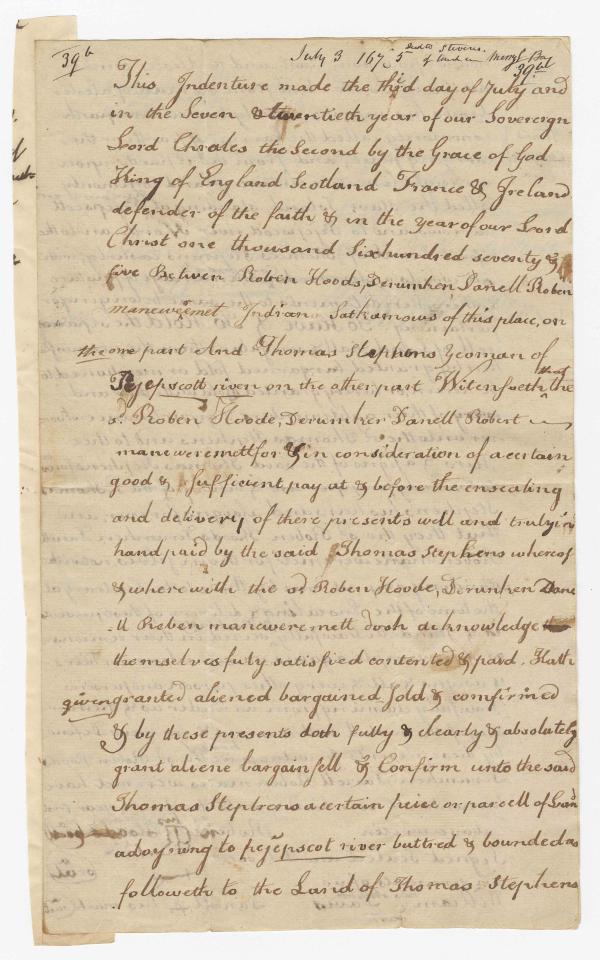 39 b
July 3 1675 Deed to Stevens.
of land in Merry Bay
39 bd
This Indenture made the third day of July and
in the Seven & twentieth year of our Sovereign
Lord Chrales the Second by the Grace of God
King of England Scotland France & Ireland
defender of the faith & in the year of our Lord
Christ one thousand Six hundred seventy &
five Betwen Roben Hoods, Derumken, Danell Roben
maneweemet Indians Satkamous of this place, on
the one part And Thomas Stephens yeoman of
Pejepscott river on the other part Witensoeth that the
sd. Roben Hoode, Derumker Danell Robert
maneweremett for & in consideration of a certain
good & sufficient pay at & before the ensealing
and delivery of there presents well and truly in
hand paid by the said Thomas Stephens whereof
& where with the sd Roben Hoode, Derunken Dane
ll Reben maneweremett dooh acknowledge
themselves fuly satisfied contented & paid. Hath
given granted aliened bargained sold & comfirmed
& by these presents doth fully & clearly & absolutely
grant aliene bargain sell & Confirm unto the said
Thomas Stephens a certain peice or parcell of Land
adoyning to pejepscot river buttred & bounded as
followeth to the Land of Thomas Stephens